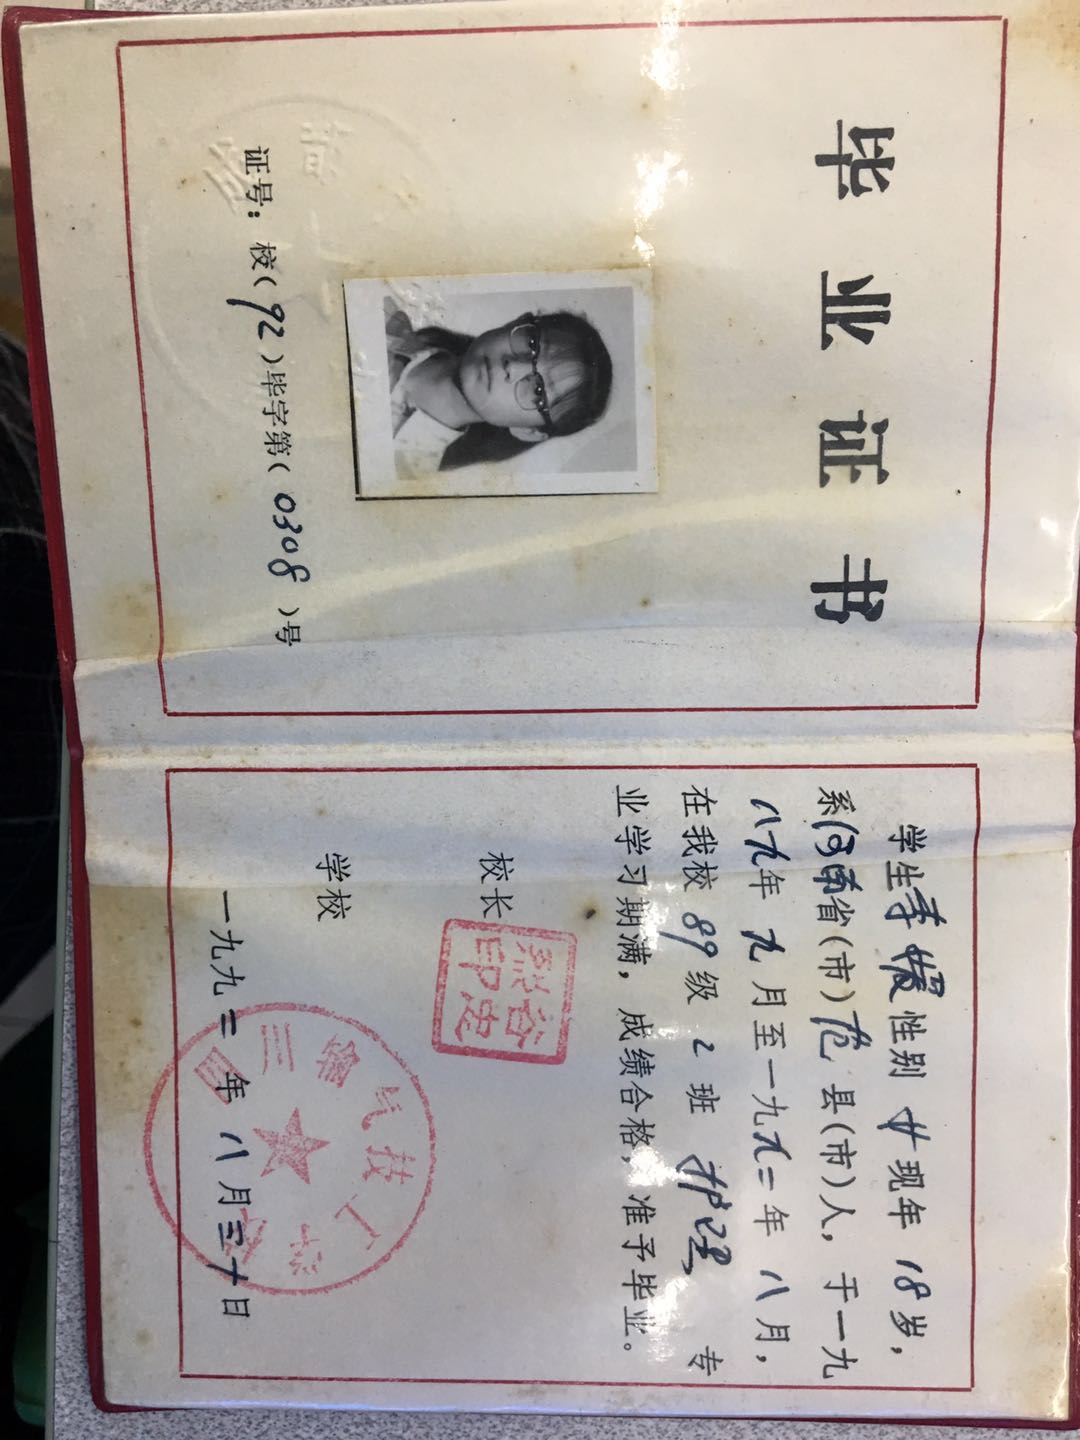 毕业证书
证号：校（92）毕字第（0308）号
学生李媛性别 女现年 18岁，
系河南省（市）范县（市）人，于一九
八九年 九月至一九九二年 八月，
在我校 89级 2班 护理 专
业学习期满，成绩合格，准予毕业。
校长
谷忠熙印
学校
一九九二年八月三十日